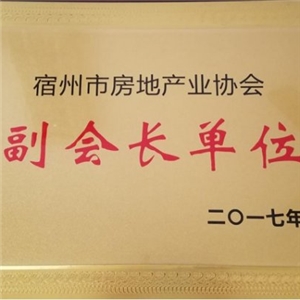 宿州市房地产业协会
副会长单位
二〇一七年